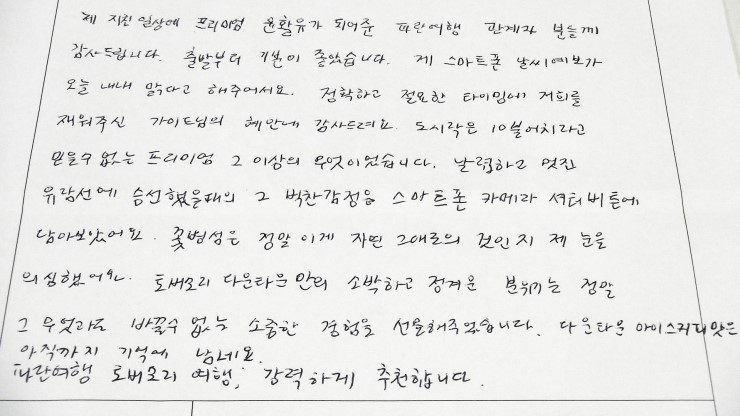 제 지친 일상에 프리미엄 윤활유가 되어준 파란여행 관계자 분들께
감사드립니다. 출발부터 기분이 좋았습니다. 제 스마트폰 날씨예보가
오늘 내내 맑다고 해주어서요. 정확하고 절묘한 타이밍에 저희를
재워주신 가이드님의 혜안에 감사드려요. 도시락은 10불어치라고
믿을수 없는 프리미엄 그 이상의 무엇이었습니다. 날렵하고 멋진
유람선에 승선했을때의 그 벅찬감정을 스마트폰 카메라 셔터버튼에
남아보았어요. 꽃병섬은 정말 이게 자연 그대로의 것인지 제 눈을
의심했어요. 토버모리 다운타운만의 소박하고 정겨운 분위기는 정말
그 무엇과도 바꿀수 없는 소중한 경험을 선물해주었습니다. 다운타운 아이스크림 맛은
아직까지 기억에 남네요.
파란여행 토버모리 여행, 강력하게 추천합니다.